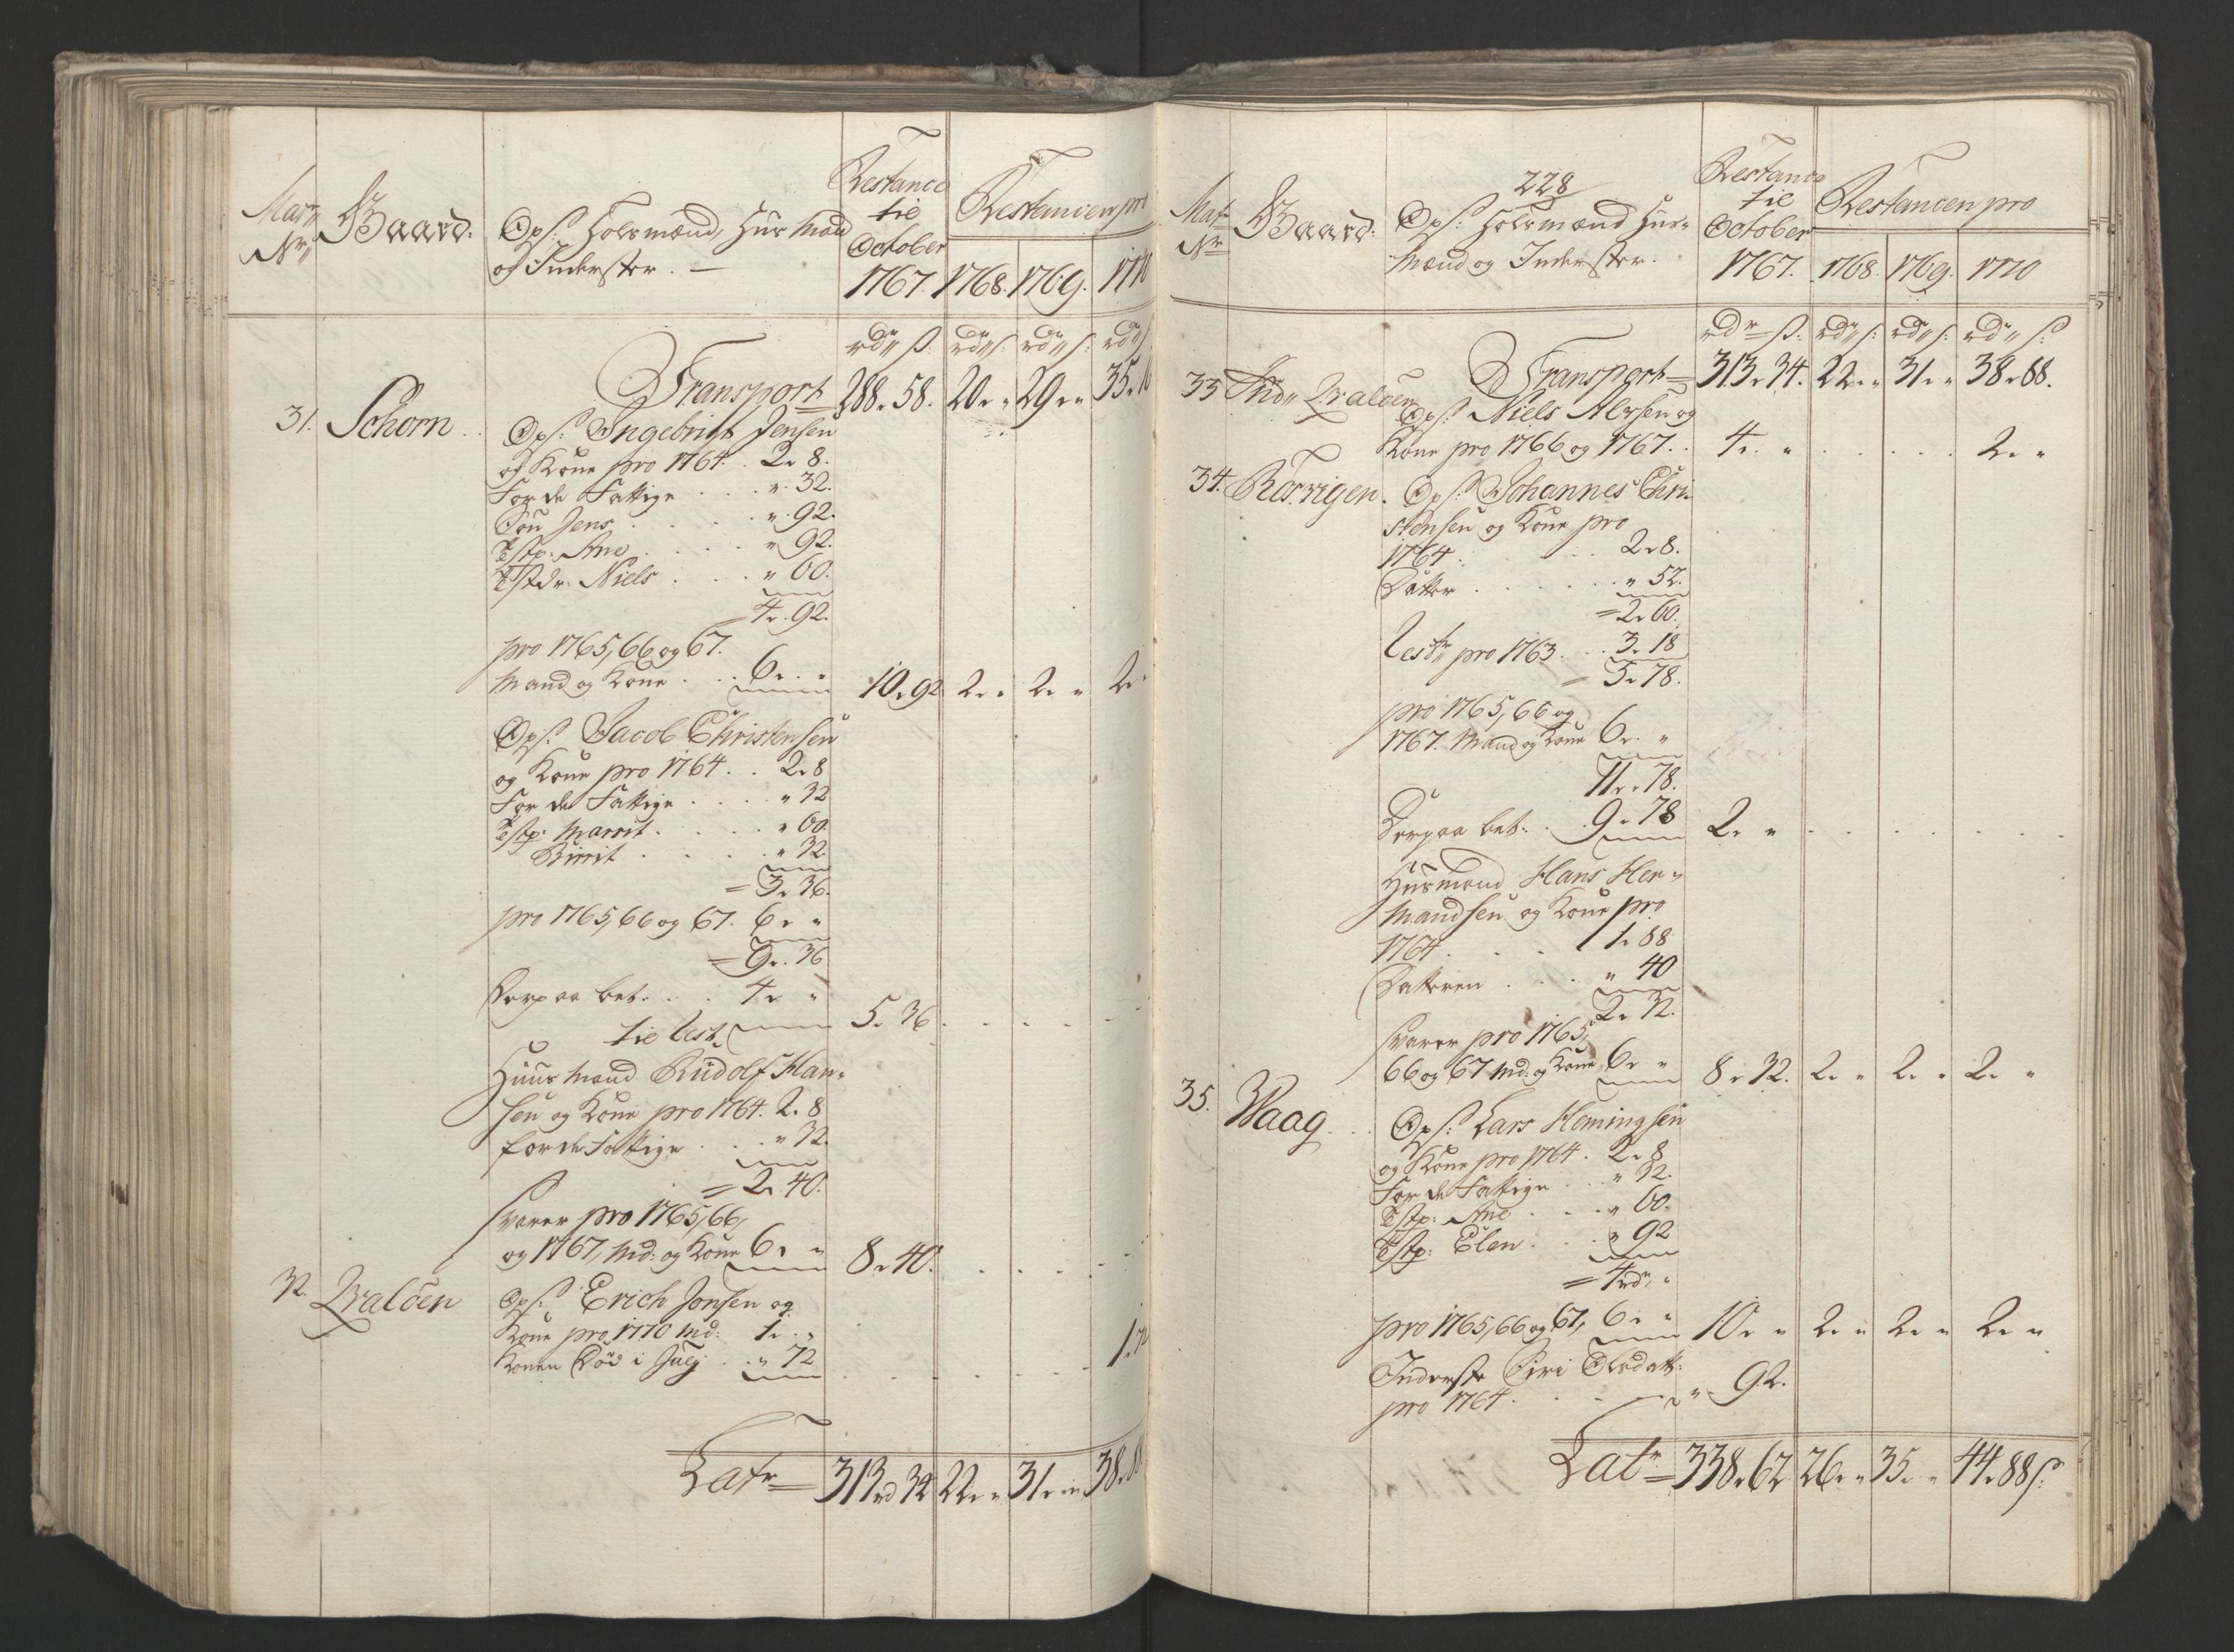 Mat:
Nr
Gaard.
Ops: Folsmænd, Huusmænd
og Inderster. —
Restance
til
October
1767.
Restancen pro
1768. 1769. 1770
rdr ß. rdr ß: rdr ß: rdr ß
Transport 288 " 58. 20 " " 29 " " 35 " 16
31. Schorn . . Ops: Ingebrigt Jensen
og Kone pro 1764. . 2 " 8.
For de Fattige . . . " 32.
Søn Jens . . . " 92.
Tstp: Ane . . . . " 92.
Tstdr: Niels . . . " 60.
= 4 " 92.
pro 1765, 66 og 67.
Mand og Kone . . 6 " " 10 " 92 2 " " 2 " " 2 "
Ops: Jacob Christensen
og Kone pro 1764 . . 2 " 8
For de Fattige . . . . " 32
Tstp: Marrit . . . . " 60.
Birrit . . . . " 32
= 3 " 36.
pro 1765, 66 og 67. 6 " "
= 9 " 36
Derpaa bet: . . 4 " "
til Rest 5 " 36 . . . .
Huusmand Rudolf Han-
sen og Kone pro 1764. 2 " 8
for de Fattige . . . " 32.
= 2 " 40.
svarer pro 1765, 66,
og 1767, Md: og Kone 6 " " 8 " 40. . . . .
32. Qvaløen Ops: Erich Jonsen og
Kone pro 1770 Md: 1 " "
Konen Død i Julj . . " 72 . . . . 1 " 72
Latr = 313 rd 34 22 " " 31 " " 38 " 88
228
Mat:
Nr
Gaard.
Ops: Folsmænd Huus-
mænd og Inderster.
Restance
til
October
1767.
Restancen pro
1768. 1769. 1770
rdr ß. rdr ß: rdr ß: rdr ß:
Transport 313 " 34. 22 " " 31 " " 38 " 88.
33 Ind" Qvaløen Ops: Niels Alersen og
Kone pro 1766 og 1767. . 4 " " . . . . . 2 " "
34. Rørrigen. Ops: Johannes Chri-
stensen og Kone pro
1764 . . . 2 " 8.
Datter . . . . . . " 52.
= 2 " 60.
Restr pro 1763 . . . 3 " 18
= 5 " 78.
pro 1765, 66 og
1767. Mand og Kone 6 " "
11 " 78.
Derpaa bet: . . 9 " 78 2 " " . . . . .
Huusmand Hans Her-
mandsen og Kone pro
1764 . . . 1 " 88
Datteren . . . " 40
2 " 32.
svarer pro 1765,
66 og 67 Md: og Kone 6 " " 8 " 32. 2 " " 2 " " 2 " "
35. Waag . . Ops: Lars Hemingsen
og Kone pro 1764 . 2 " 8
For de Fattige . . " 32.
Tstp: Ane . . . " 60.
Tstp: Elen . . . " 92
= 4 rdr "
pro 1765, 66 og 67, 6 " " 10 " " 2 " " 2 " " 2 " "
Inderste Siri Olsdatt:
pro 1764 . . . . " 92.
Latr = 338 " 62 26 " " 35 " " 44 " 88 ß: